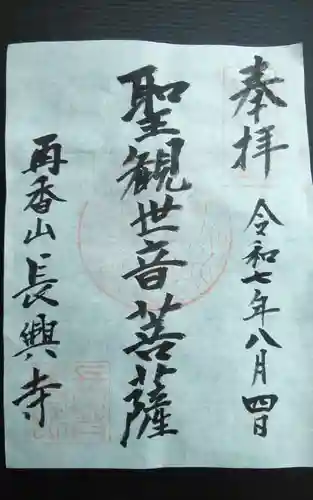 奉拝
令和七年八月四日
聖観世音菩薩
再香山長興寺